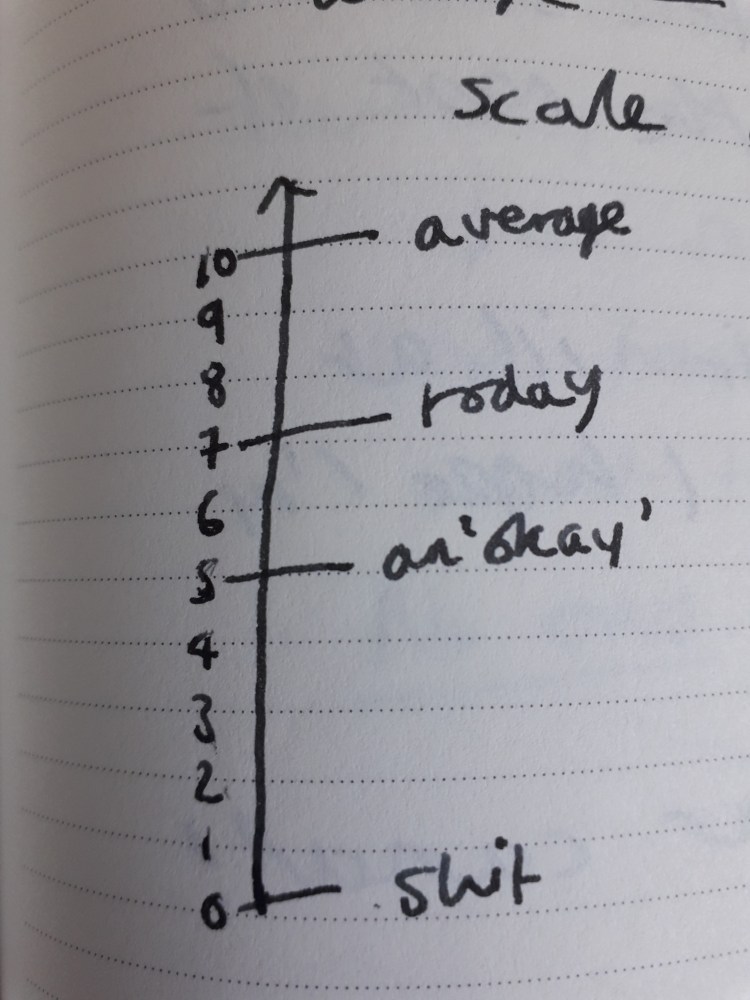 scale
10 average
9
8
7 today
6
5 an 'okay'
4
3
2
1
0 shit